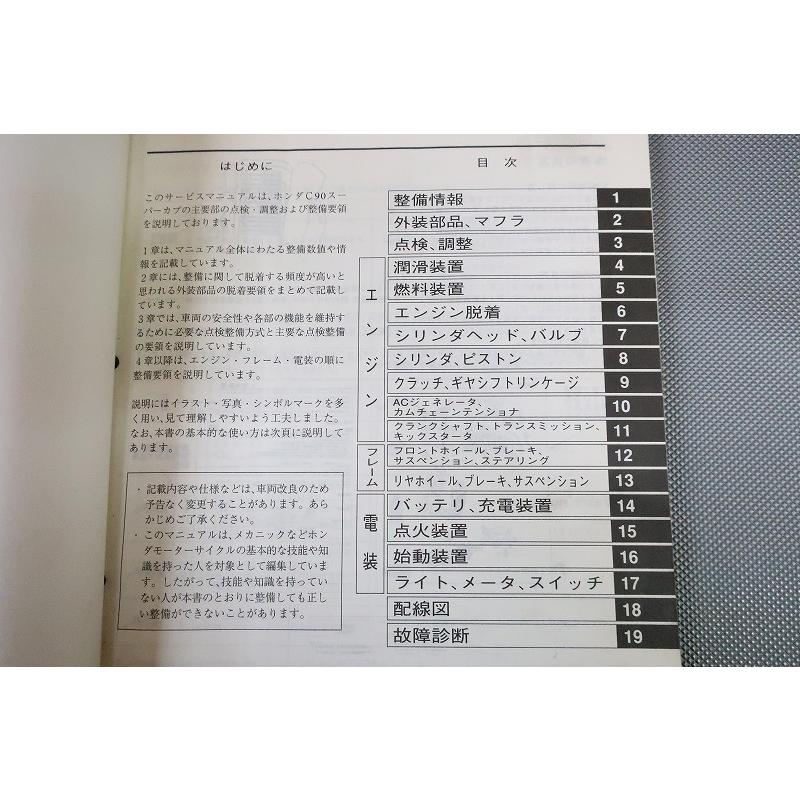 はじめに
このサービスマニュアルは、ホンダC90スー
パーカブの主要部の点検・調整および整備要領
を説明しております。
1章は、マニュアル全体にわたる整備数値や情
報を記載しています。
2章には、整備に関して脱着する頻度が高いと
思われる外装部品の脱着要領をまとめて記載し
ています。
3章では、車両の安全性や各部の機能を維持す
るために必要な点検整備方式と主要な点検整備
の要領を説明しています。
4章以降は、エンジン・フレーム・電装の順に
整備要領を説明しています。
説明にはイラスト・写真・シンボルマークを多
く用い、見て理解しやすいよう工夫しました。
なお、本書の基本的な使い方は次頁に説明して
あります。
・記載内容や仕様などは、車両改良のため
予告なく変更することがあります。あら
かじめご了承ください。
・このマニュアルは、メカニックなどホン
ダモーターサイクルの基本的な技能や知
識を持った人を対象として編集していま
す。したがって、技能や知識を持ってい
ない人が本書のとおりに整備しても正し
い整備ができないことがあります。
目次
整備情報 1
外装部品、マフラ 2
点検、調整 3
エンジン
潤滑装置 4
燃料装置 5
エンジン脱着 6
シリンダヘッド、バルブ 7
シリンダ、ピストン 8
クラッチ、ギヤシフトリンケージ 9
ACジェネレータ、
カムチェーンテンショナ 10
クランクシャフト、トランスミッション、
キックスタータ 11
フレーム
フロントホイール、ブレーキ、
サスペンション、ステアリング 12
リヤホイール、ブレーキ、サスペンション 13
電装
バッテリ、充電装置 14
点火装置 15
始動装置 16
ライト、メータ、スイッチ 17
配線図 18
故障診断 19